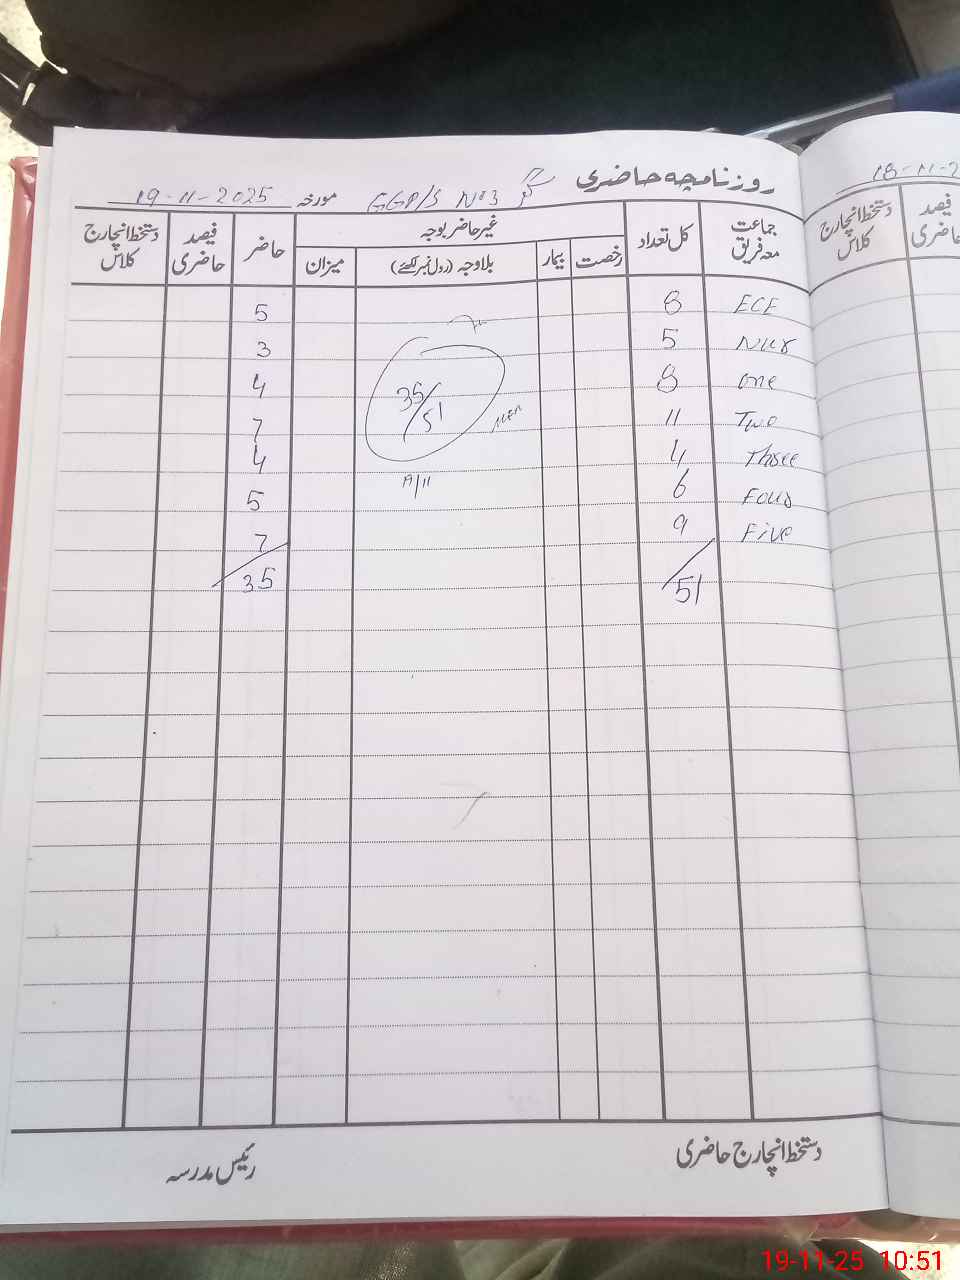 روزنامچہ حاضری GGP/S No 3 مورخہ 19-11-2025
جماعت معہ فریق کل تعداد غیر حاضر بوجہ حاضر فیصد حاضری دستخط انچارج کلاس
رخصت بیمار بلاوجہ (رول نمبر لکھئے) میزان
ECE 8 5
Nur 5 3
one 8 4
Two 11 7
35/51
Three 4 4
Four 6 5
A/11
Five 9 7
51 35
دستخط انچارج حاضری رئیس مدرسہ
18-11-2
فیصد حاضری دستخط انچارج کلاس
19-11-25 10:51